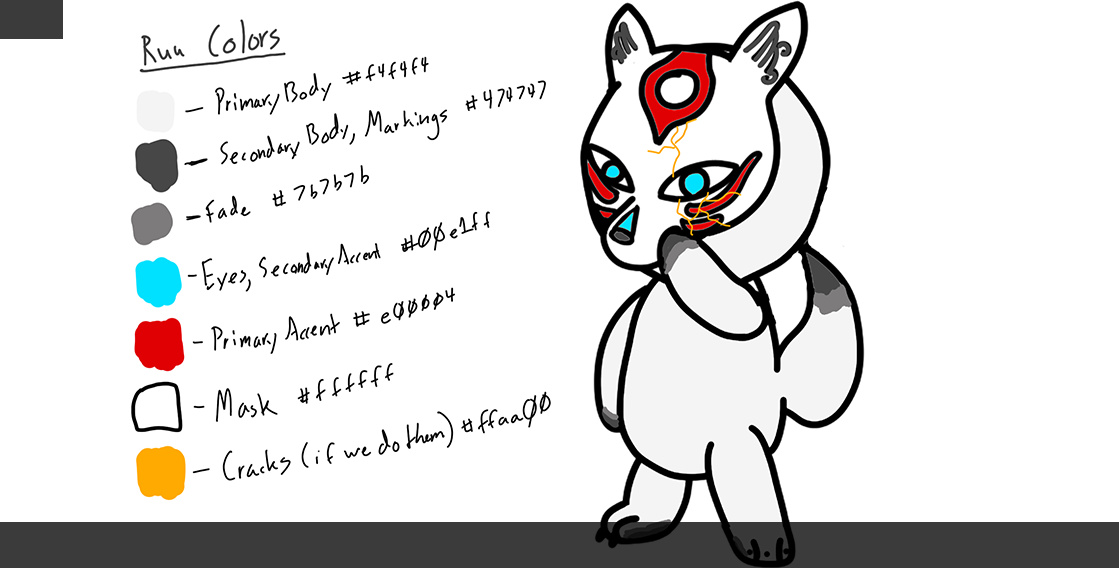 Ruu Colors
- Primary Body #f4f4f4
- Secondary Body, Markings #474747
- Fade #7b7b7b
- Eyes, Secondary Accent #00e1ff
- Primary Accent #e00004
- Mask #ffffff
- Cracks (if we do them) #ffaa00